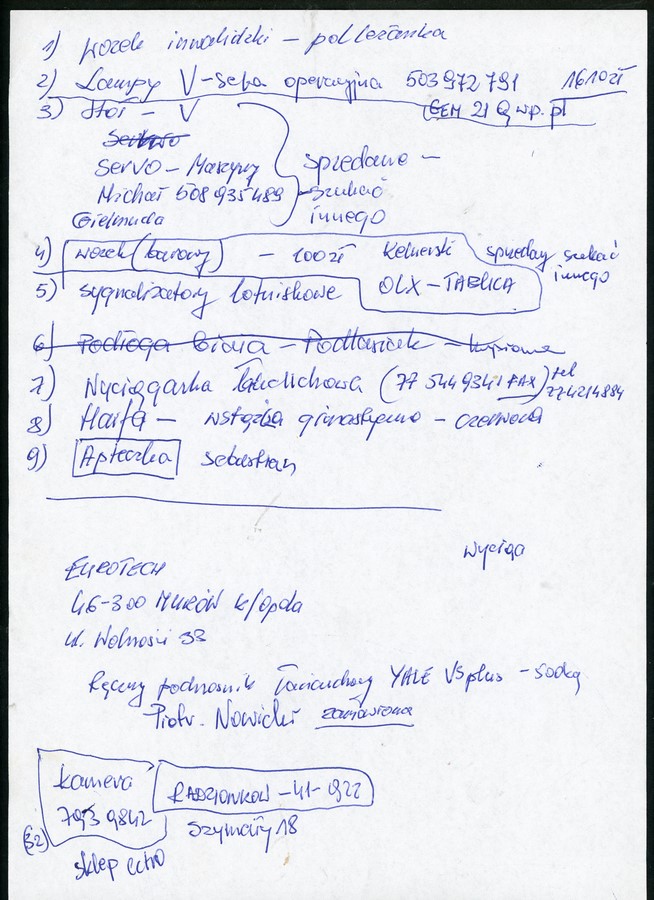 1) wózek inwalidzki – pol leżanka
2) Lampy V-seba operacyjna 503 972 791 1610 zł
GEM 21 @ wp.pl
3) Stół – V
Serwo
Servo – Maszyny
Michał 508 935 489
Gielmuda
sprzedano –
szukać
innego
4) wózek (barowy) – 100 zł Kelnerski sprzedany szukać
innego
5) sygnalizatory lotniskowe OLX – TABLICA
6) Podłoga biała – Podtłasiek – kupiona
7) Wyciągarka łańcuchowa (77 5449341 FAX) tel
774214884
8) Harfa – wstążka gimnastyczna – czerwona
9) Apteczka Sebastian
Wyciąg
EUROTECH
46-300 MURÓW k/Opola
ul. Wolności 33
Ręczny podnośnik łańcuchowy YALE VS plus –
Piotr. Nowicki zamówiona
kamera
793 9842
(32)
RADZIONKÓW – 41-922
Szymały 18
sklep echo